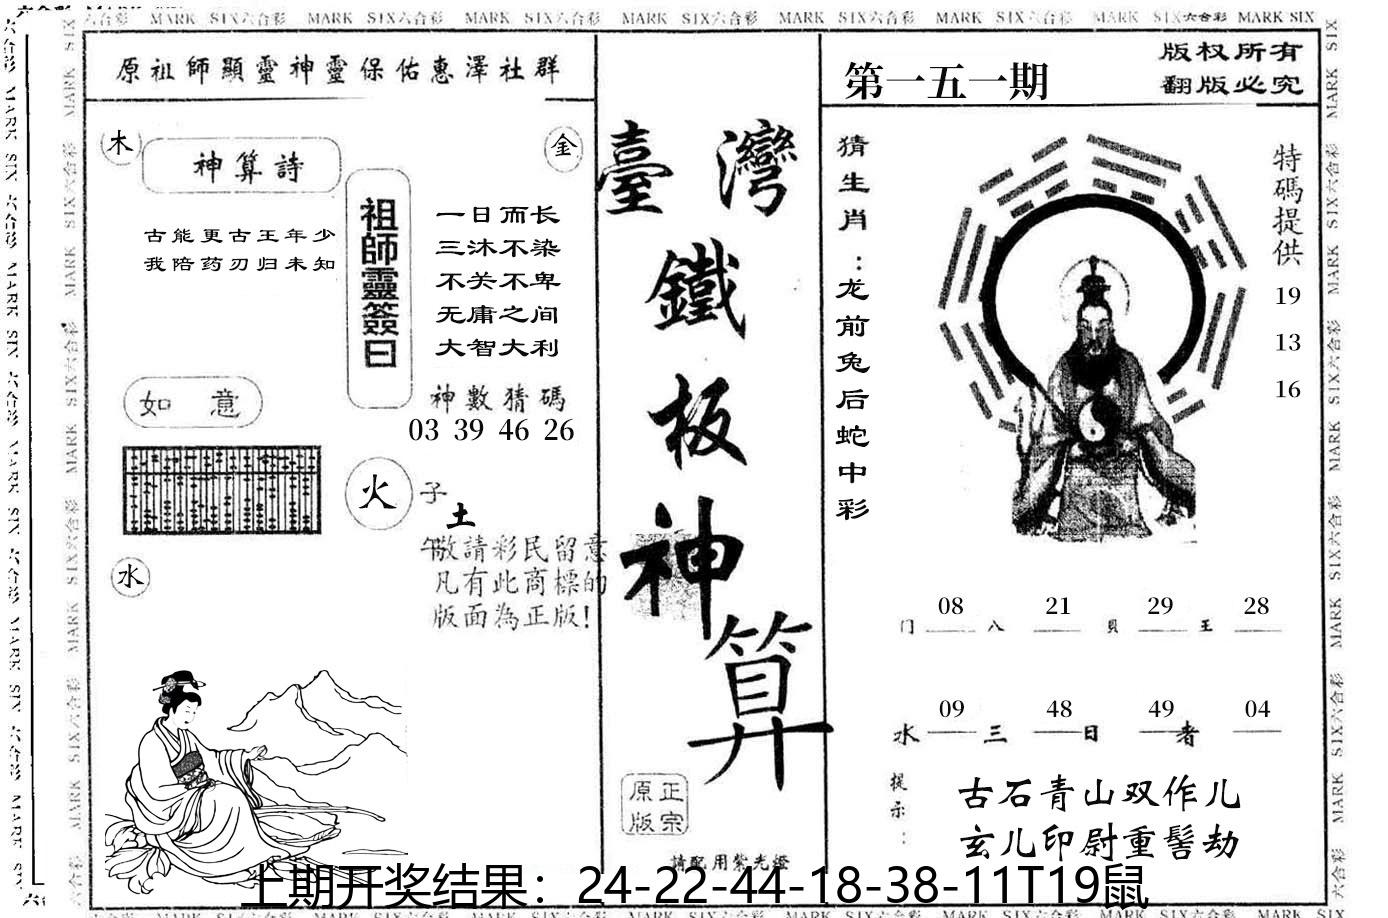 MARK SIX六合彩 MARK SIX六合彩 MARK SIX六合彩 MARK SIX六合彩 MARK SIX六合彩 MARK SIX六合彩 MARK SIX六合彩 MARK SIX六合彩 MARK SIX
原祖師顯靈神靈保佑惠澤社群
木
神算詩
金
古能更古王年少
我陪药刃归未知
祖師靈簽曰
一日而长
三沐不染
不关不卑
无庸之间
大智大利
神數猜碼
03 39 46 26
如 意
火
子
土
午
敬請彩民留意
凡有此商標的
版面為正版!
水
臺灣
鐵
板
神
算
正宗
原版
請配用紫光燈
第一五一期
版权所有
翻版必究
猜生肖:龙前兔后蛇中彩
特碼提供
19
13
16
08 21 29 28
门 八 贝 王
09 48 49 04
水 三 日 者
提示:
古石青山双作儿
玄儿印尉重髻劫
上期开奖结果：24-22-44-18-38-11T19鼠